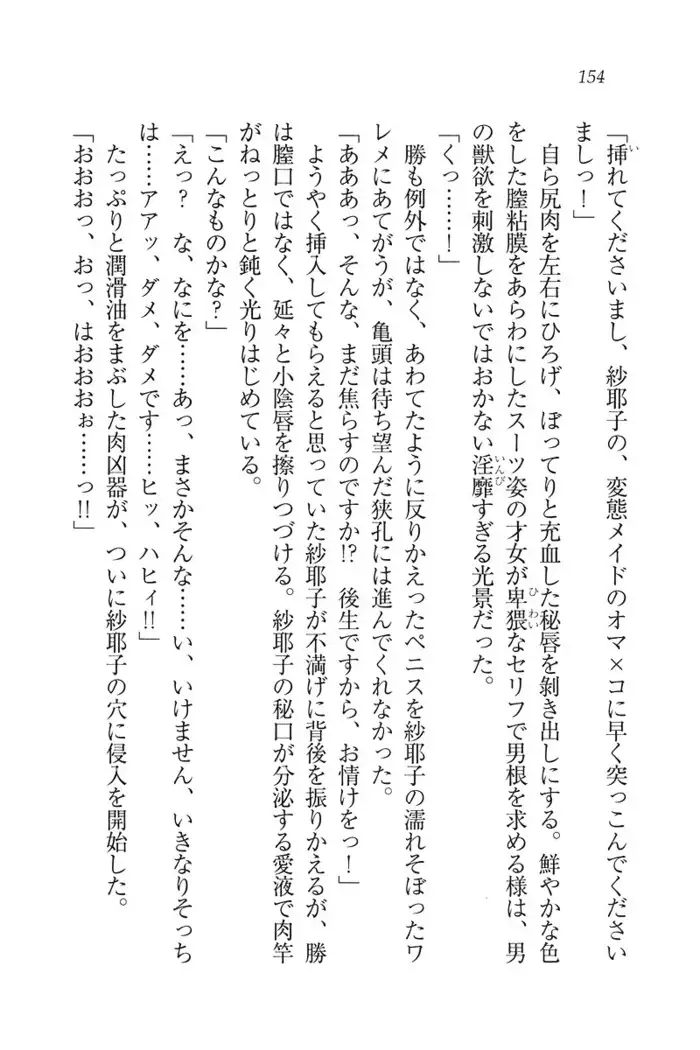 154
「挿れてくださいまし、紗耶子の、変態メイドのオマ×コに早く突っこんでください
ましっ！」
自ら尻肉を左右にひろげ、ぼってりと充血した秘唇を剝き出しにする。鮮やかな色
をした膣粘膜をあらわにしたスーツ姿の才女が卑猥なセリフで男根を求める様は、男
の獣欲を刺激しないではおかない淫靡すぎる光景だった。
「くっ……！」
勝も例外ではなく、あわてたように反りかえったペニスを紗耶子の濡れそぼったワ
レメにあてがうが、亀頭は待ち望んだ狭孔には進んでくれなかった。
「あああっ、そんな、まだ焦らすのですか!?　後生ですから、お情けをっ！」
ようやく挿入してもらえると思っていた紗耶子が不満げに背後を振りかえるが、勝
は膣口ではなく、延々と小陰唇を擦りつづける。紗耶子の秘口が分泌する愛液で肉竿
がねっとりと鈍く光りはじめている。
「こんなものかな？」
「えっ？　な、なにを……あっ、まさかそんな……い、いけません、いきなりそっち
は……アアッ、ダメ、ダメです……ヒッ、ハヒィ!!」
たっぷりと潤滑油をまぶした肉凶器が、ついに紗耶子の穴に侵入を開始した。
「おおおっ、おっ、はおおおぉ……っ!!」